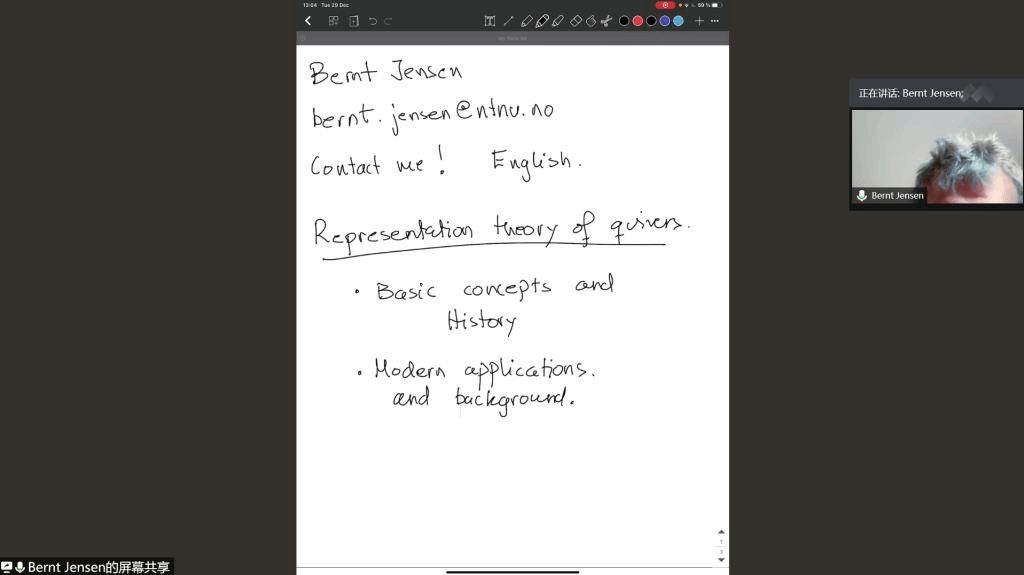 13:04 Tue 29 Dec
59 %
Bernt Jensen
bernt.jensen@ntnu.no
Contact me! English.
Representation theory of quivers.
• Basic concepts and
History
• Modern applications.
and background.
1
3
正在讲话: Bernt Jensen;
Bernt Jensen
Bernt Jensen的屏幕共享